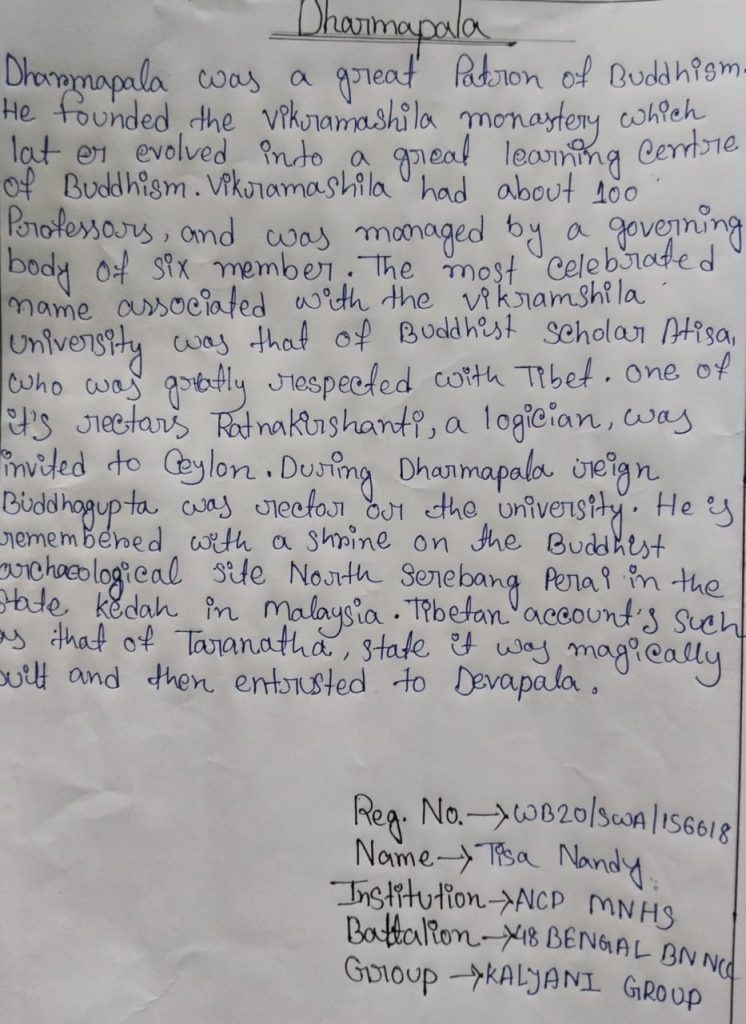 Dharmapala
Dharmapala was a great Patron of Buddhism.
He founded the vikramashila monastery which
lat er evolved into a great learning Centre
of Buddhism. Vikramashila had about 100
Professors, and was managed by a governing
body of six member. The most Celebrated
name associated with the vikramshila
university was that of Buddhist scholar Atisa,
who was greatly respected with Tibet. one of
it's rectars Ratnakirshanti, a logician, was
invited to Ceylon. During Dharmapala reign
Buddhogupta was rector our the university. He is
remembered with a shrine on the Buddhist
archaeological site North Serebang Perai in the
State kedah in malaysia. Tibetan account's such
as that of Taranatha, state it was magically
built and then entrusted to Devapala.
Reg. No.→WB20/SWA/156618
Name→Tisa Nandy
Institution→NCP MNHS
Battalion→48 BENGAL BN NCC
Group→KALYANI GROUP